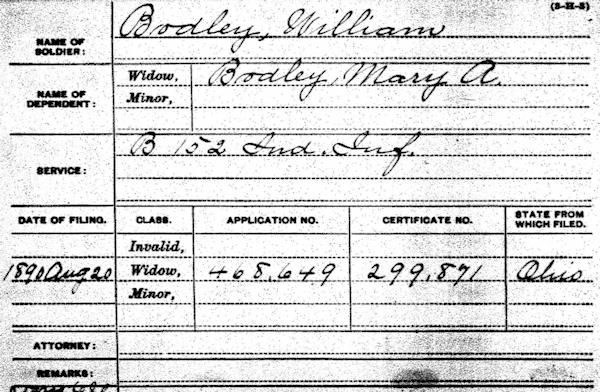 (3-H-3)
NAME OF SOLDIER: Bodley, William
NAME OF DEPENDENT: Widow, Bodley, Mary A.
Minor,
SERVICE: B 152 Ind. Inf.
DATE OF FILING. CLASS. APPLICATION NO. CERTIFICATE NO. STATE FROM WHICH FILED.
Invalid,
1890 Aug 20 Widow, 468,649 299,871 Ohio
Minor,
ATTORNEY:
REMARKS: